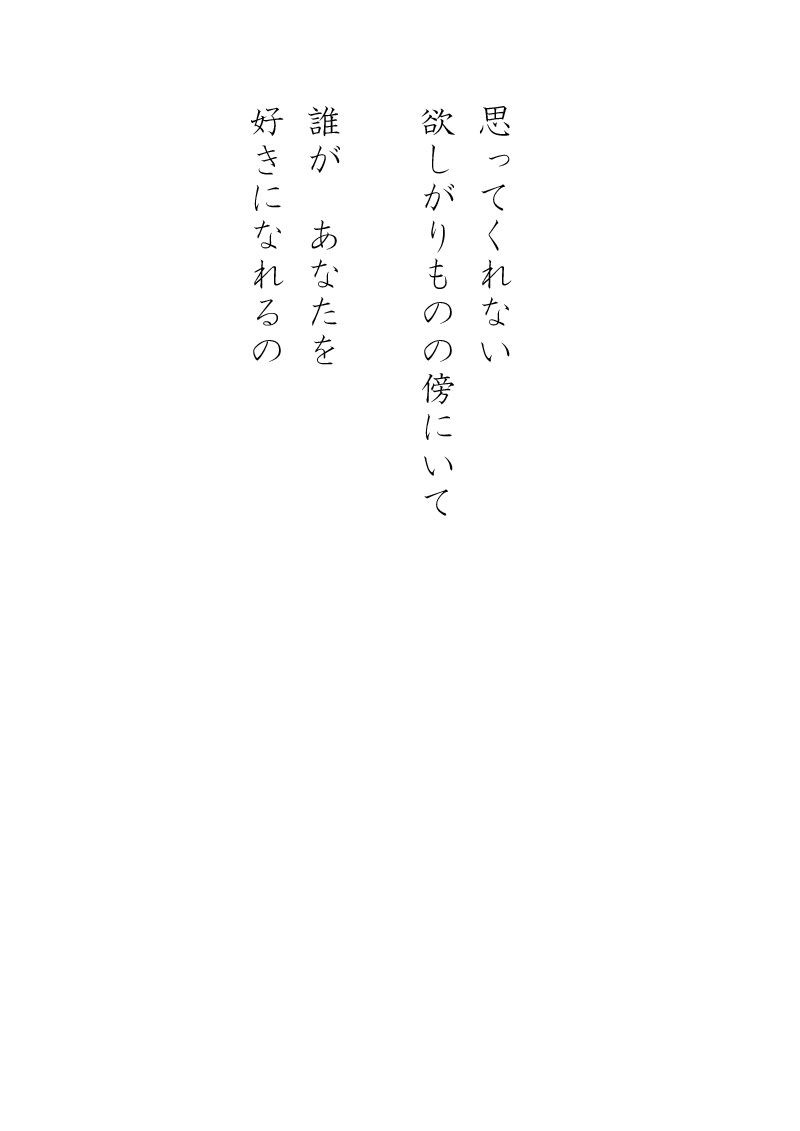 思ってくれない
欲しがりものの傍にいて
誰が　あなたを
好きになれるの